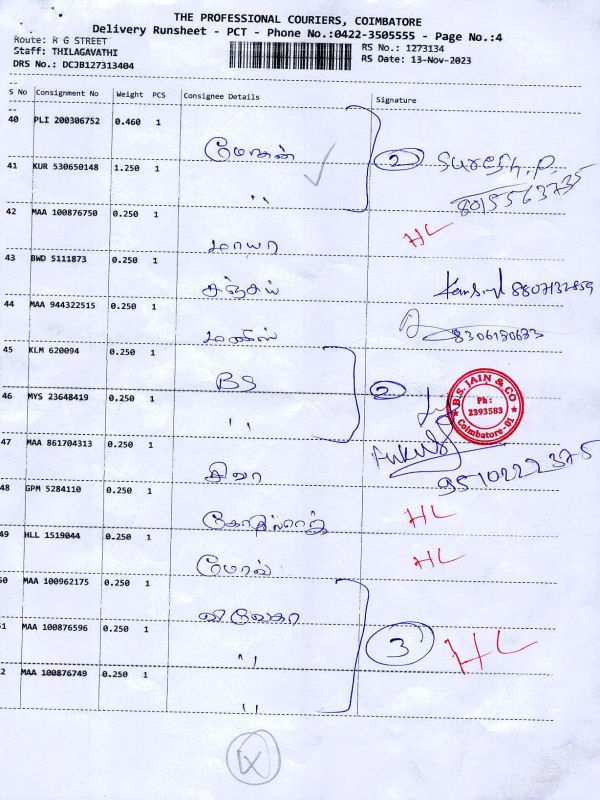 THE PROFESSIONAL COURIERS, COIMBATORE
Delivery Runsheet - PCT - Phone No.:0422-3505555 - Page No.:4
Route: R G STREET
RS No.: 1273134
Staff: THILAGAVATHI
RS Date: 13-Nov-2023
DRS No.: DCJB127313404
S No Consignment No Weight PCS Consignee Details Signature
40 PLI 200306752 0.460 1
மோகன் 2 Suresh.P.
8015563735
41 KUR 530650148 1.250 1
,,
42 MAA 100876750 0.250 1
மாயா HL
43 BWD 5111873 0.250 1
சஞ்சய் 8807132859
44 MAA 944322515 0.250 1
8306150673
45 KLM 620094 0.250 1
BS 2
B.S. JAIN & CO
Ph :
2393583
Coimbatore - 01
46 MYS 23648419 0.250 1
,,
47 MAA 861704313 0.250 1
9510222375
48 GPM 5284110 0.250 1
HL
49 HLL 1519044 0.250 1
HL
50 MAA 100962175 0.250 1
3 HL
51 MAA 100876596 0.250 1
,,
52 MAA 100876749 0.250 1
,,